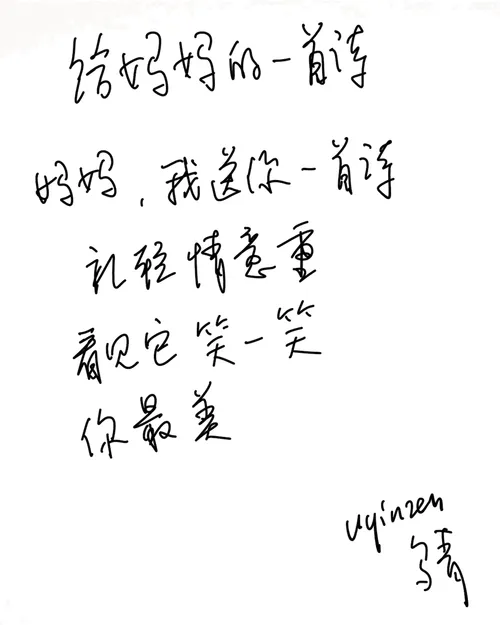 给妈妈的一首诗
妈妈，我送你一首诗
礼轻情意重
看见它笑一笑
你最美
uqinzen
乌青